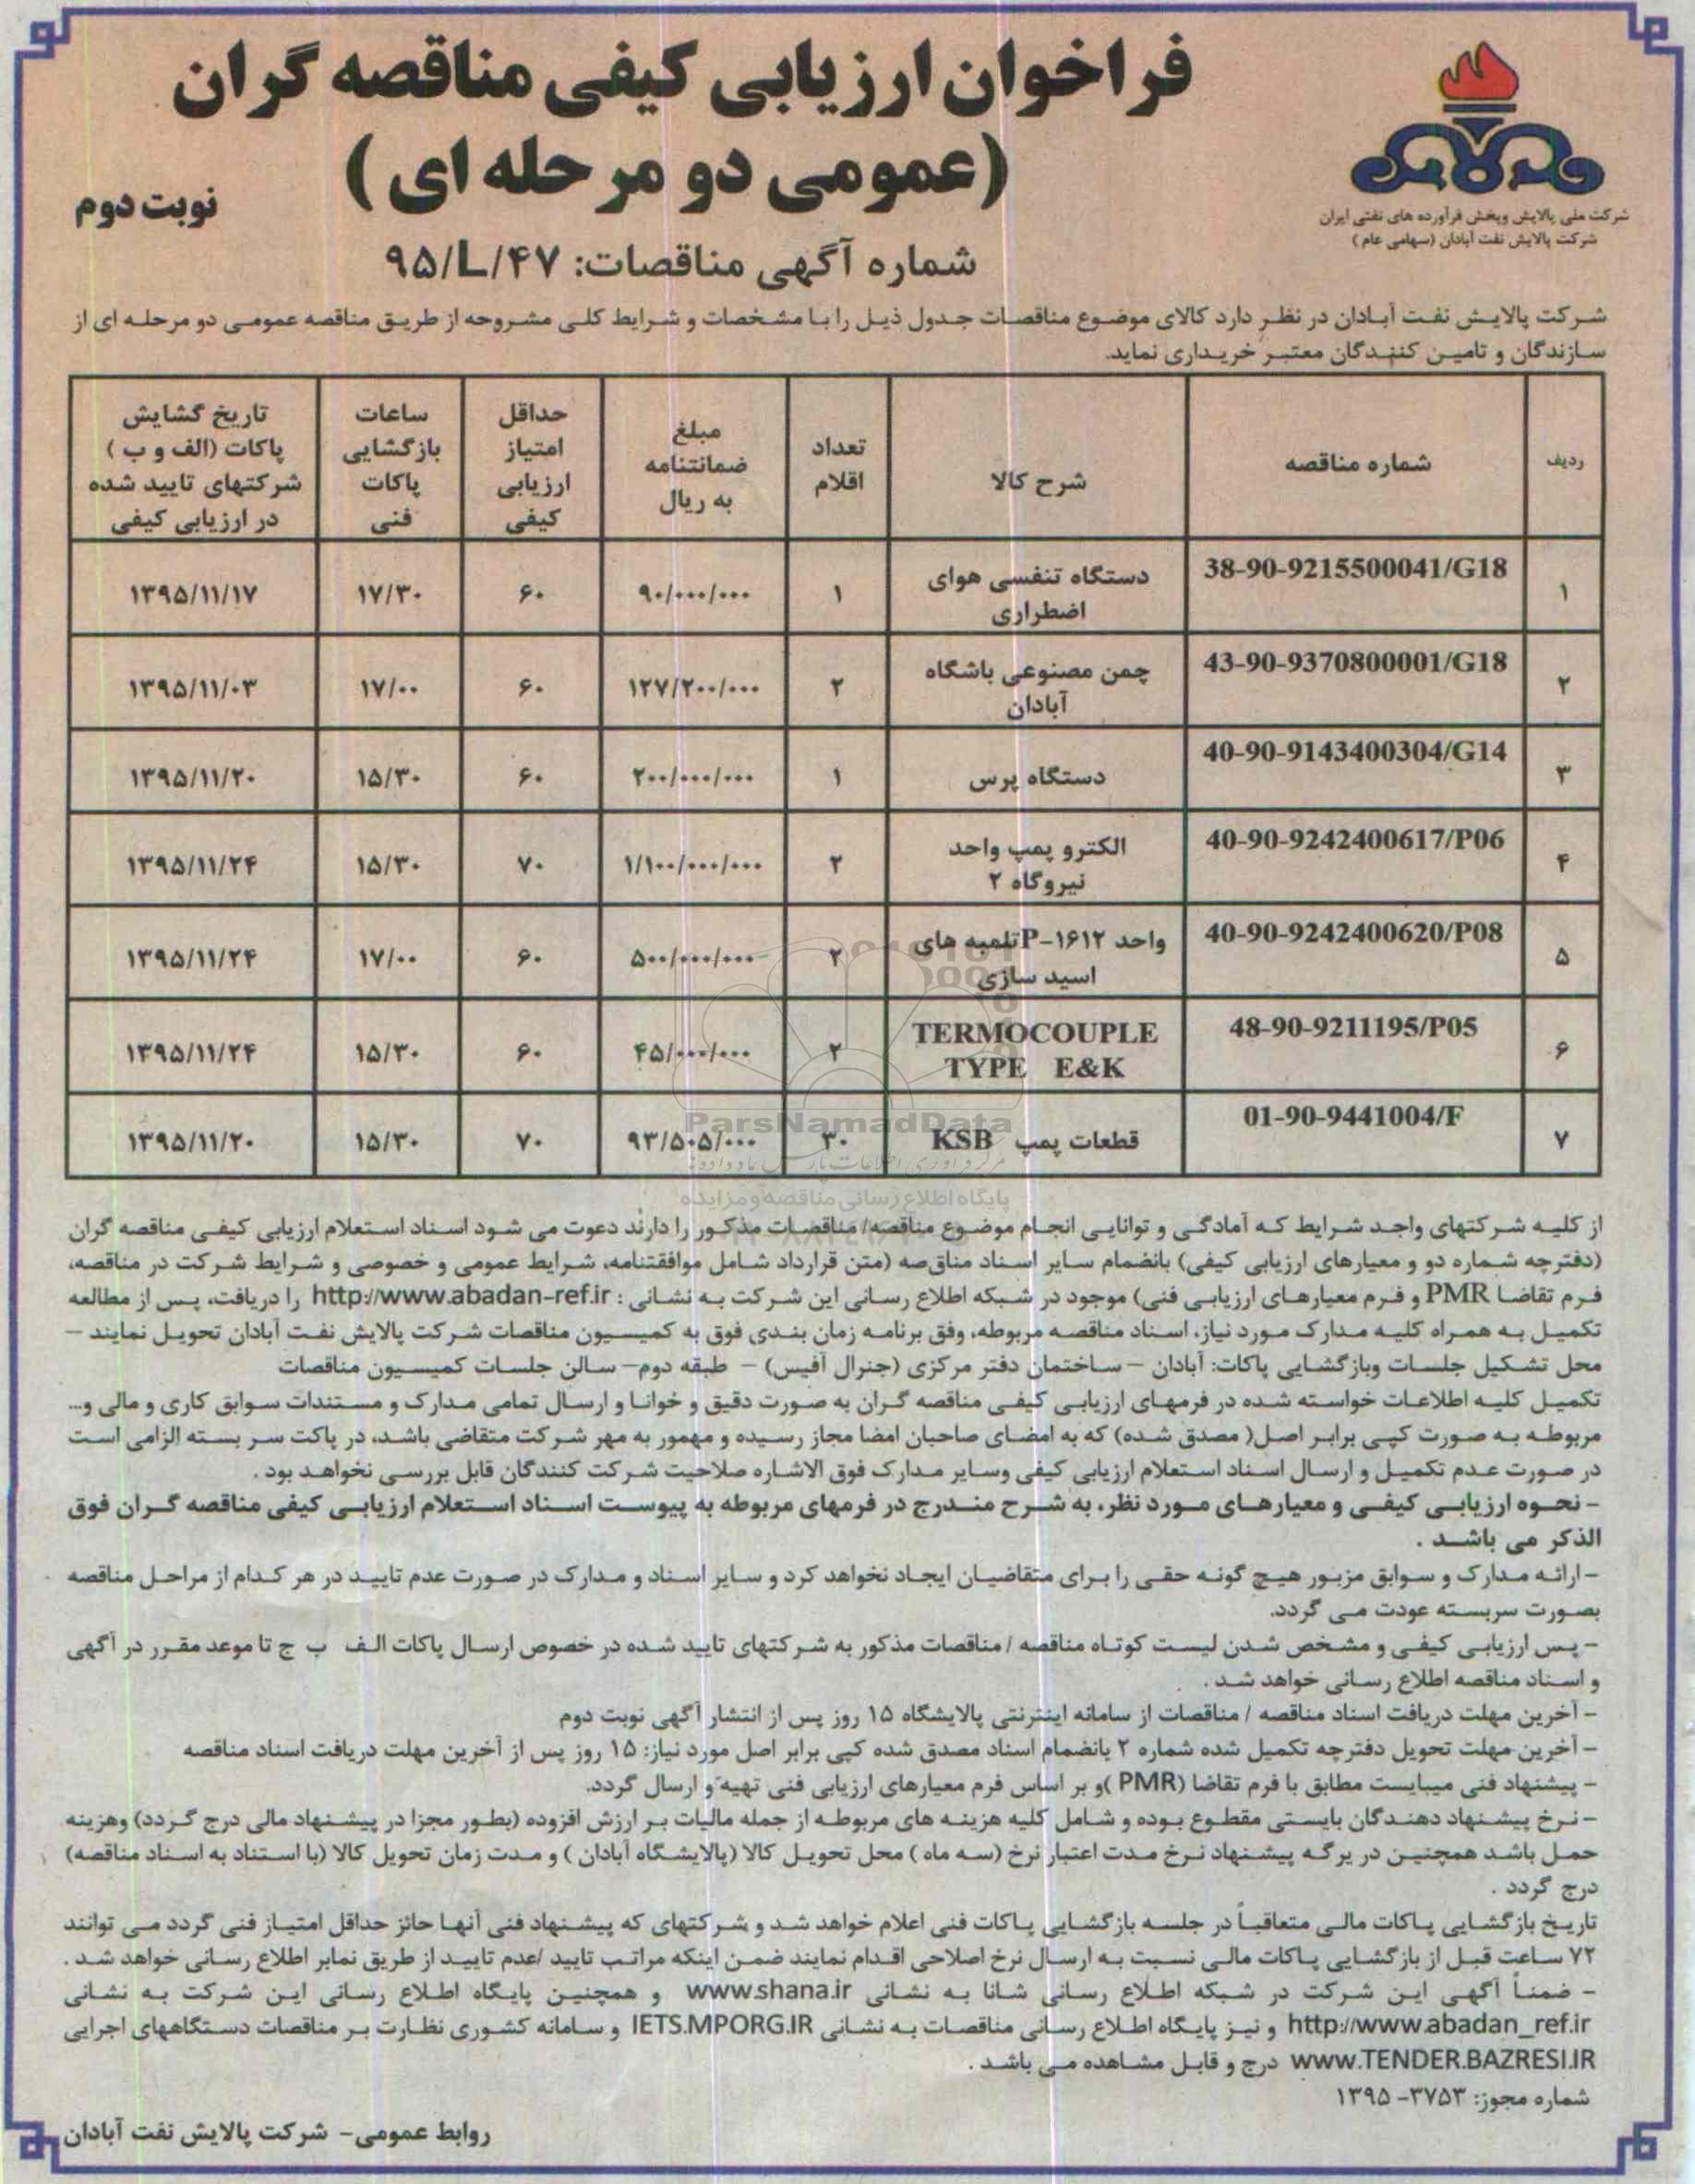 فراخوان ارزیابی کیفی مناقصه گران
(عمومی دو مرحله ای)
نوبت دوم
شرکت ملی پالایش وپخش فرآورده های نفتی ایران
شرکت پالایش نفت آبادان (سهامی عام)
شماره آگهی مناقصات: ۹۵/L/۴۷
شرکت پالایش نفت آبادان در نظر دارد کالای موضوع مناقصات جدول ذیل را با مشخصات و شرایط کلی مشروحه از طریق مناقصه عمومی دو مرحله ای از
سازندگان و تامین کنندگان معتبر خریداری نماید.
ردیف | شماره مناقصه | شرح کالا | تعداد اقلام | مبلغ ضمانتنامه به ریال | حداقل امتیاز ارزیابی کیفی | ساعات بازگشایی پاکات فنی | تاریخ گشایش پاکات (الف و ب) شرکتهای تایید شده در ارزیابی کیفی
۱ | 38-90-9215500041/G18 | دستگاه تنفسی هوای اضطراری | ۱ | ۹۰/۰۰۰/۰۰۰ | ۶۰ | ۱۷/۳۰ | ۱۳۹۵/۱۱/۱۷
۲ | 43-90-9370800001/G18 | چمن مصنوعی باشگاه آبادان | ۲ | ۱۲۷/۲۰۰/۰۰۰ | ۶۰ | ۱۷/۰۰ | ۱۳۹۵/۱۱/۰۳
۳ | 40-90-9143400304/G14 | دستگاه پرس | ۱ | ۲۰۰/۰۰۰/۰۰۰ | ۶۰ | ۱۵/۳۰ | ۱۳۹۵/۱۱/۲۰
۴ | 40-90-9242400617/P06 | الکترو پمپ واحد نیروگاه ۲ | ۲ | ۱/۱۰۰/۰۰۰/۰۰۰ | ۷۰ | ۱۵/۳۰ | ۱۳۹۵/۱۱/۲۴
۵ | 40-90-9242400620/P08 | واحد P-۱۶۱۲تلمبه های اسید سازی | ۲ | ۵۰۰/۰۰۰/۰۰۰ | ۶۰ | ۱۷/۰۰ | ۱۳۹۵/۱۱/۲۴
۶ | 48-90-9211195/P05 | TERMOCOUPLE TYPE E&K | ۲ | ۴۵/۰۰۰/۰۰۰ | ۶۰ | ۱۵/۳۰ | ۱۳۹۵/۱۱/۲۴
۷ | 01-90-9441004/F | قطعات پمپ KSB | ۳۰ | ۹۳/۵۰۵/۰۰۰ | ۷۰ | ۱۵/۳۰ | ۱۳۹۵/۱۱/۲۰
ParsNamadData
پایگاه اطلاع رسانی مناقصه و مزایده
از کلیه شرکتهای واجد شرایط که آمادگی و توانایی انجام موضوع مناقصه/ مناقصات مذکور را دارند دعوت می شود اسناد استعلام ارزیابی کیفی مناقصه گران
(دفترچه شماره دو و معیارهای ارزیابی کیفی) بانضمام سایر اسناد مناقصه (متن قرارداد شامل موافقتنامه، شرایط عمومی و خصوصی و شرایط شرکت در مناقصه،
فرم تقاضا PMR و فرم معیارهای ارزیابی فنی) موجود در شبکه اطلاع رسانی این شرکت به نشانی : http://www.abadan-ref.ir را دریافت، پس از مطالعه
تکمیل به همراه کلیه مدارک مورد نیاز، اسناد مناقصه مربوطه، وفق برنامه زمان بندی فوق به کمیسیون مناقصات شرکت پالایش نفت آبادان تحویل نمایند –
محل تشکیل جلسات وبازگشایی پاکات: آبادان – ساختمان دفتر مرکزی (جنرال آفیس) – طبقه دوم– سالن جلسات کمیسیون مناقصات
تکمیل کلیه اطلاعات خواسته شده در فرمهای ارزیابی کیفی مناقصه گران به صورت دقیق و خوانا و ارسال تمامی مدارک و مستندات سوابق کاری و مالی و...
مربوطه به صورت کپی برابر اصل( مصدق شده) که به امضای صاحبان امضا مجاز رسیده و ممهور به مهر شرکت متقاضی باشد، در پاکت سر بسته الزامی است
در صورت عدم تکمیل و ارسال اسناد استعلام ارزیابی کیفی وسایر مدارک فوق الاشاره صلاحیت شرکت کنندگان قابل بررسی نخواهد بود .
- نحوه ارزیابی کیفی و معیارهای مورد نظر، به شرح مندرج در فرمهای مربوطه به پیوست اسناد استعلام ارزیابی کیفی مناقصه گران فوق
الذکر می باشد .
- ارائه مدارک و سوابق مزبور هیچ گونه حقی را برای متقاضیان ایجاد نخواهد کرد و سایر اسناد و مدارک در صورت عدم تایید در هر کدام از مراحل مناقصه
بصورت سربسته عودت می گردد.
- پس ارزیابی کیفی و مشخص شدن لیست کوتاه مناقصه /مناقصات مذکور به شرکتهای تایید شده در خصوص ارسال پاکات الف ب ج تا موعد مقرر در آگهی
و اسناد مناقصه اطلاع رسانی خواهد شد .
- آخرین مهلت دریافت اسناد مناقصه / مناقصات از سامانه اینترنتی پالایشگاه ۱۵ روز پس از انتشار آگهی نوبت دوم
- آخرین مهلت تحویل دفترچه تکمیل شده شماره ۲ بانضمام اسناد مصدق شده کپی برابر اصل مورد نیاز: ۱۵ روز پس از آخرین مهلت دریافت اسناد مناقصه
- پیشنهاد فنی میبایست مطابق با فرم تقاضا (PMR )و بر اساس فرم معیارهای ارزیابی فنی تهیه و ارسال گردد.
- نرخ پیشنهاد دهندگان بایستی مقطوع بوده و شامل کلیه هزینه های مربوطه از جمله مالیات بر ارزش افزوده (بطور مجزا در پیشنهاد مالی درج گردد) وهزینه
حمل باشد همچنین در برگه پیشنهاد نرخ مدت اعتبار نرخ (سه ماه ) محل تحویل کالا (پالایشگاه آبادان ) و مدت زمان تحویل کالا (با استناد به اسناد مناقصه)
درج گردد .
تاریخ بازگشایی پاکات مالی متعاقباً در جلسه بازگشایی پاکات فنی اعلام خواهد شد و شرکتهای که پیشنهاد فنی آنها حائز حداقل امتیاز فنی گردد می توانند
۷۲ ساعت قبل از بازگشایی پاکات مالی نسبت به ارسال نرخ اصلاحی اقدام نمایند ضمن اینکه مراتب تایید /عدم تایید از طریق نمابر اطلاع رسانی خواهد شد .
- ضمناً آگهی این شرکت در شبکه اطلاع رسانی شانا به نشانی www.shana.ir و همچنین پایگاه اطلاع رسانی این شرکت به نشانی
http://www.abadan_ref.ir و نیز پایگاه اطلاع رسانی مناقصات به نشانی IETS.MPORG.IR و سامانه کشوری نظارت بر مناقصات دستگاههای اجرایی
www.TENDER.BAZRESI.IR درج و قابل مشاهده می باشد .
شماره مجوز: ۳۷۵۳- ۱۳۹۵
روابط عمومی- شرکت پالایش نفت آبادان